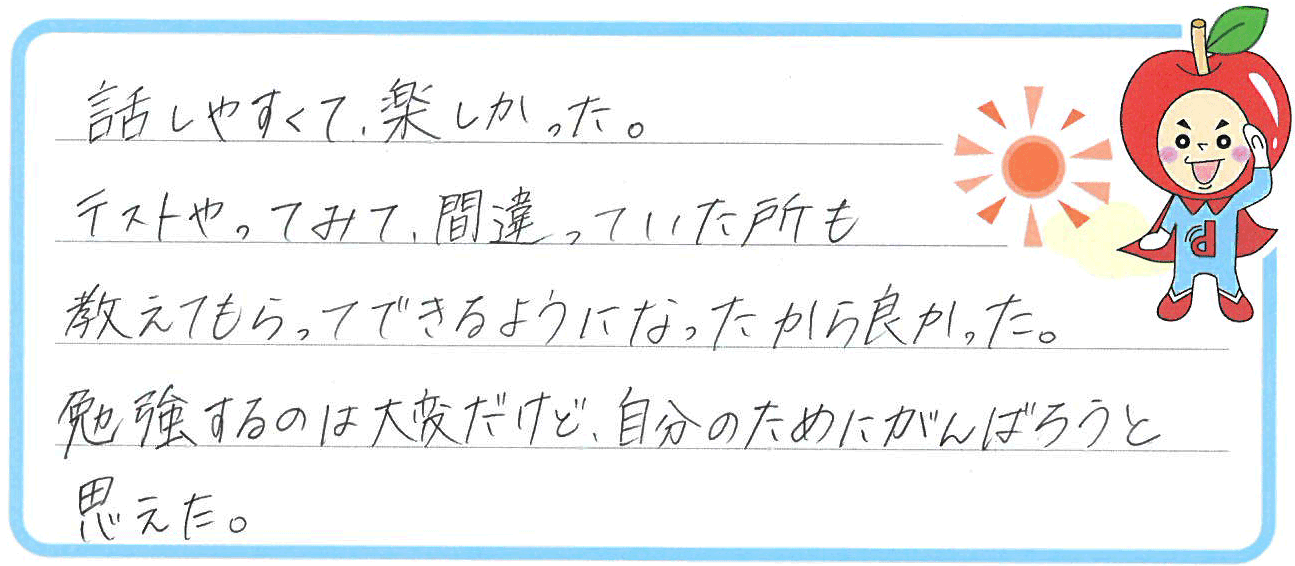 話しやすくて、楽しかった。
テストやってみて、間違っていた所も
教えてもらってできるようになったから良かった。
勉強するのは大変だけど、自分のためにがんばろうと
思えた。